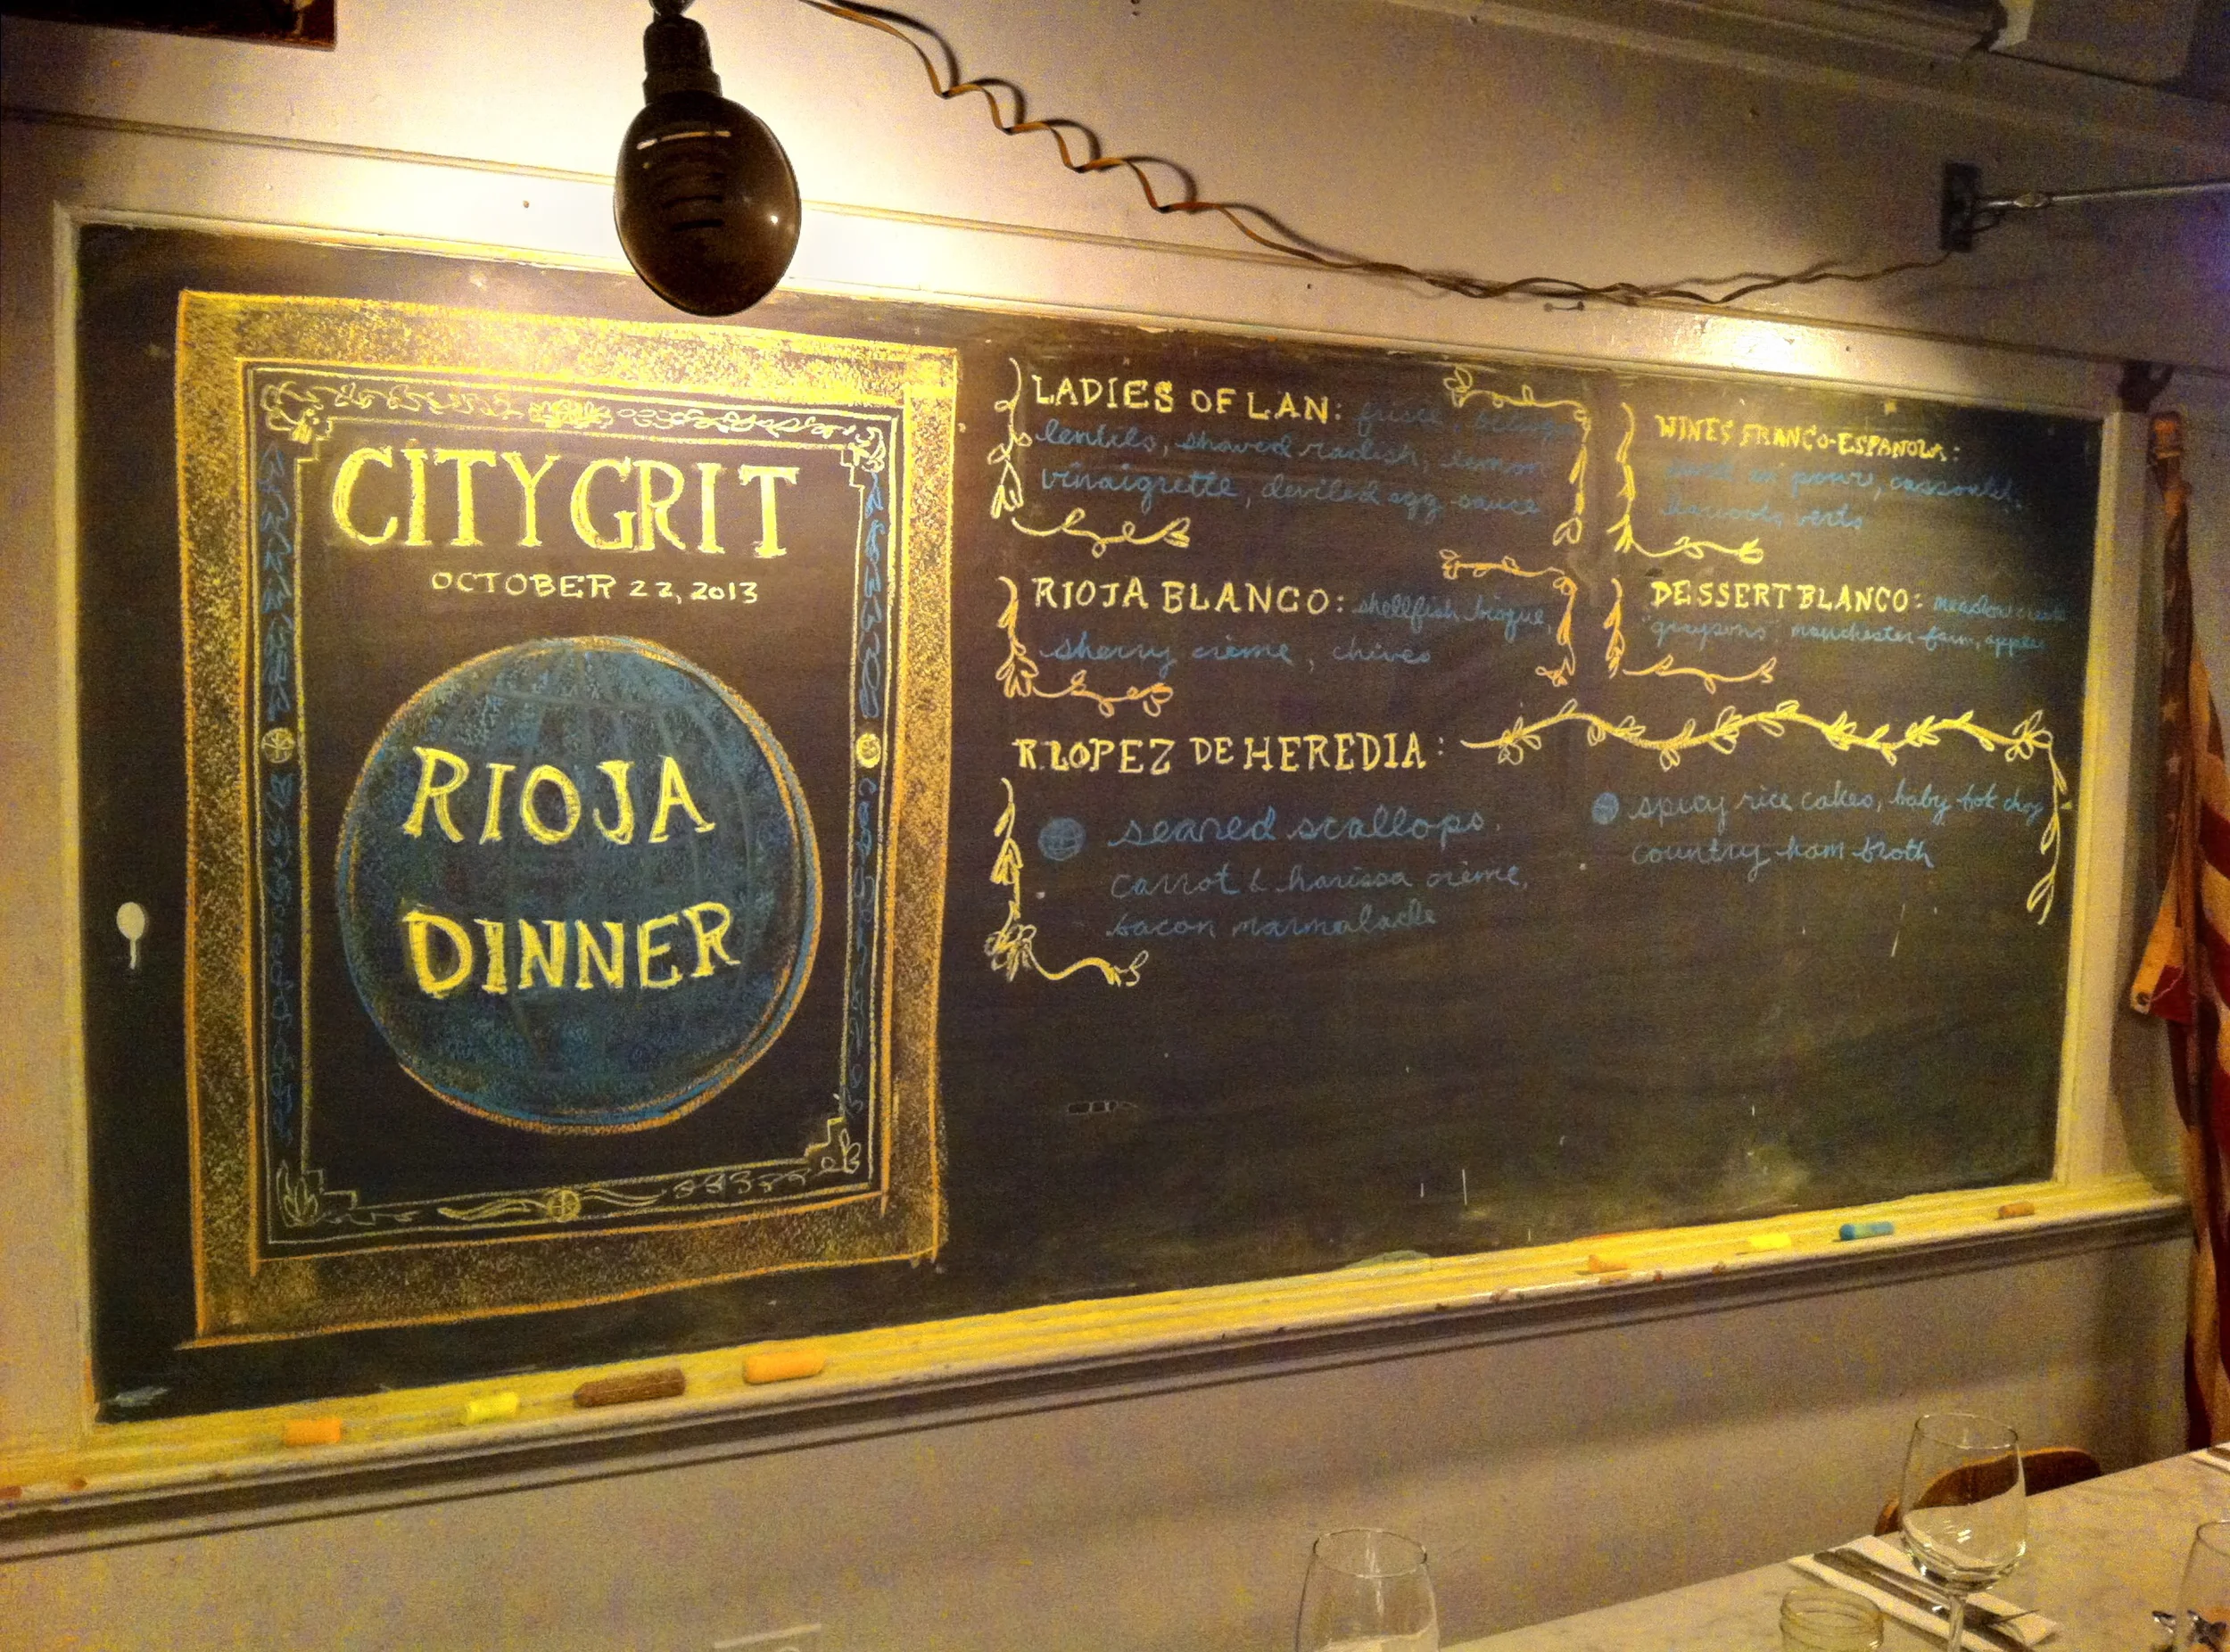 CITY GRIT
OCTOBER 22, 2013
RIOJA
DINNER
LADIES OF LAN: frisée,
lentils, shaved radish, lemon
vinaigrette, deviled egg sauce
RIOJA BLANCO: shellfish bisque,
sherry crème, chives
R. LOPEZ DE HEREDIA:
seared scallops,
carrot & harissa crème,
bacon marmalade
WINES FRANCO-ESPANOLA:
cassoulet,
haricots verts
DESSERT BLANCO: meadow creek
"graysons", manchester farm, apples
spicy rice cakes, baby bok choy
country ham broth